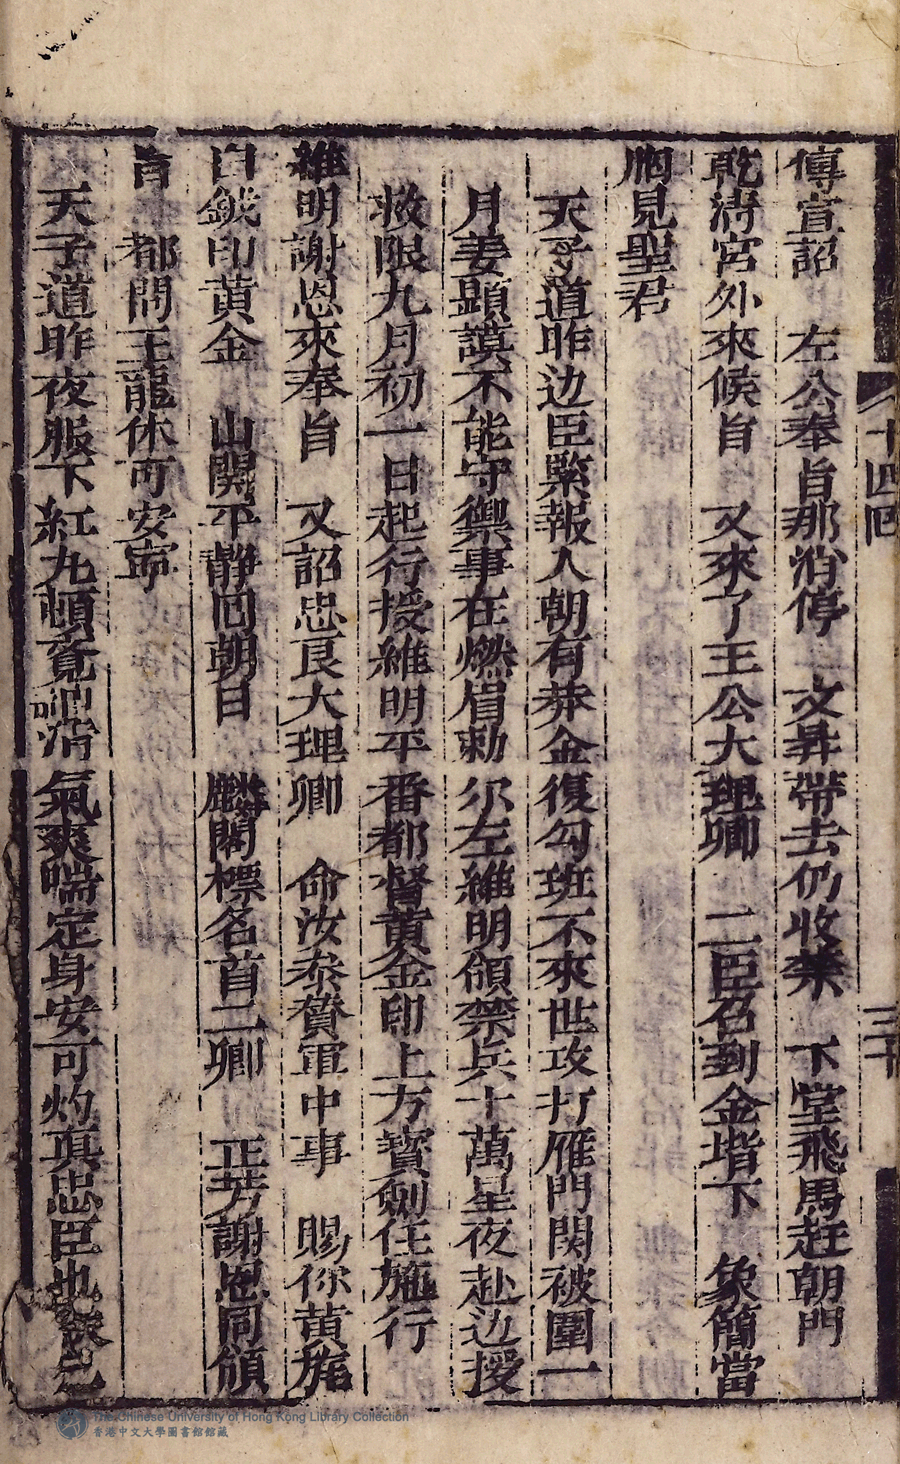 十四囘
三十
傳宣詔　左公奉旨那消停　文昇帶去仍收禁　下堂飛馬赶朝門
乾淸宮外來候旨　又來了王公大理卿　二臣召到金堦下　象簡當
胸見聖君
天子道昨边臣緊報人朝有莽金復勾班不來世攻打雁門関被圍一
月姜顕謨不能守禦事在燃眉勅尔左維明領禁兵十萬星夜赴边授
救限九月初一日起行授維明平番都督黄金印上方寳劍任施行
維明謝恩來奉旨　又詔忠良大理卿　命汝叅賛軍中事　賜你黄旄
白鉞印黄金　山関平靜囘朝日　麟閣標名首二卿　正芳謝恩同領
旨　都問王龍休可安寧
天子道昨夜服下紅丸頓覚　氣爽喘定身安可灼真忠臣也
The Chinese University of Hong Kong Library Collection
香港中文大學圖書館館藏